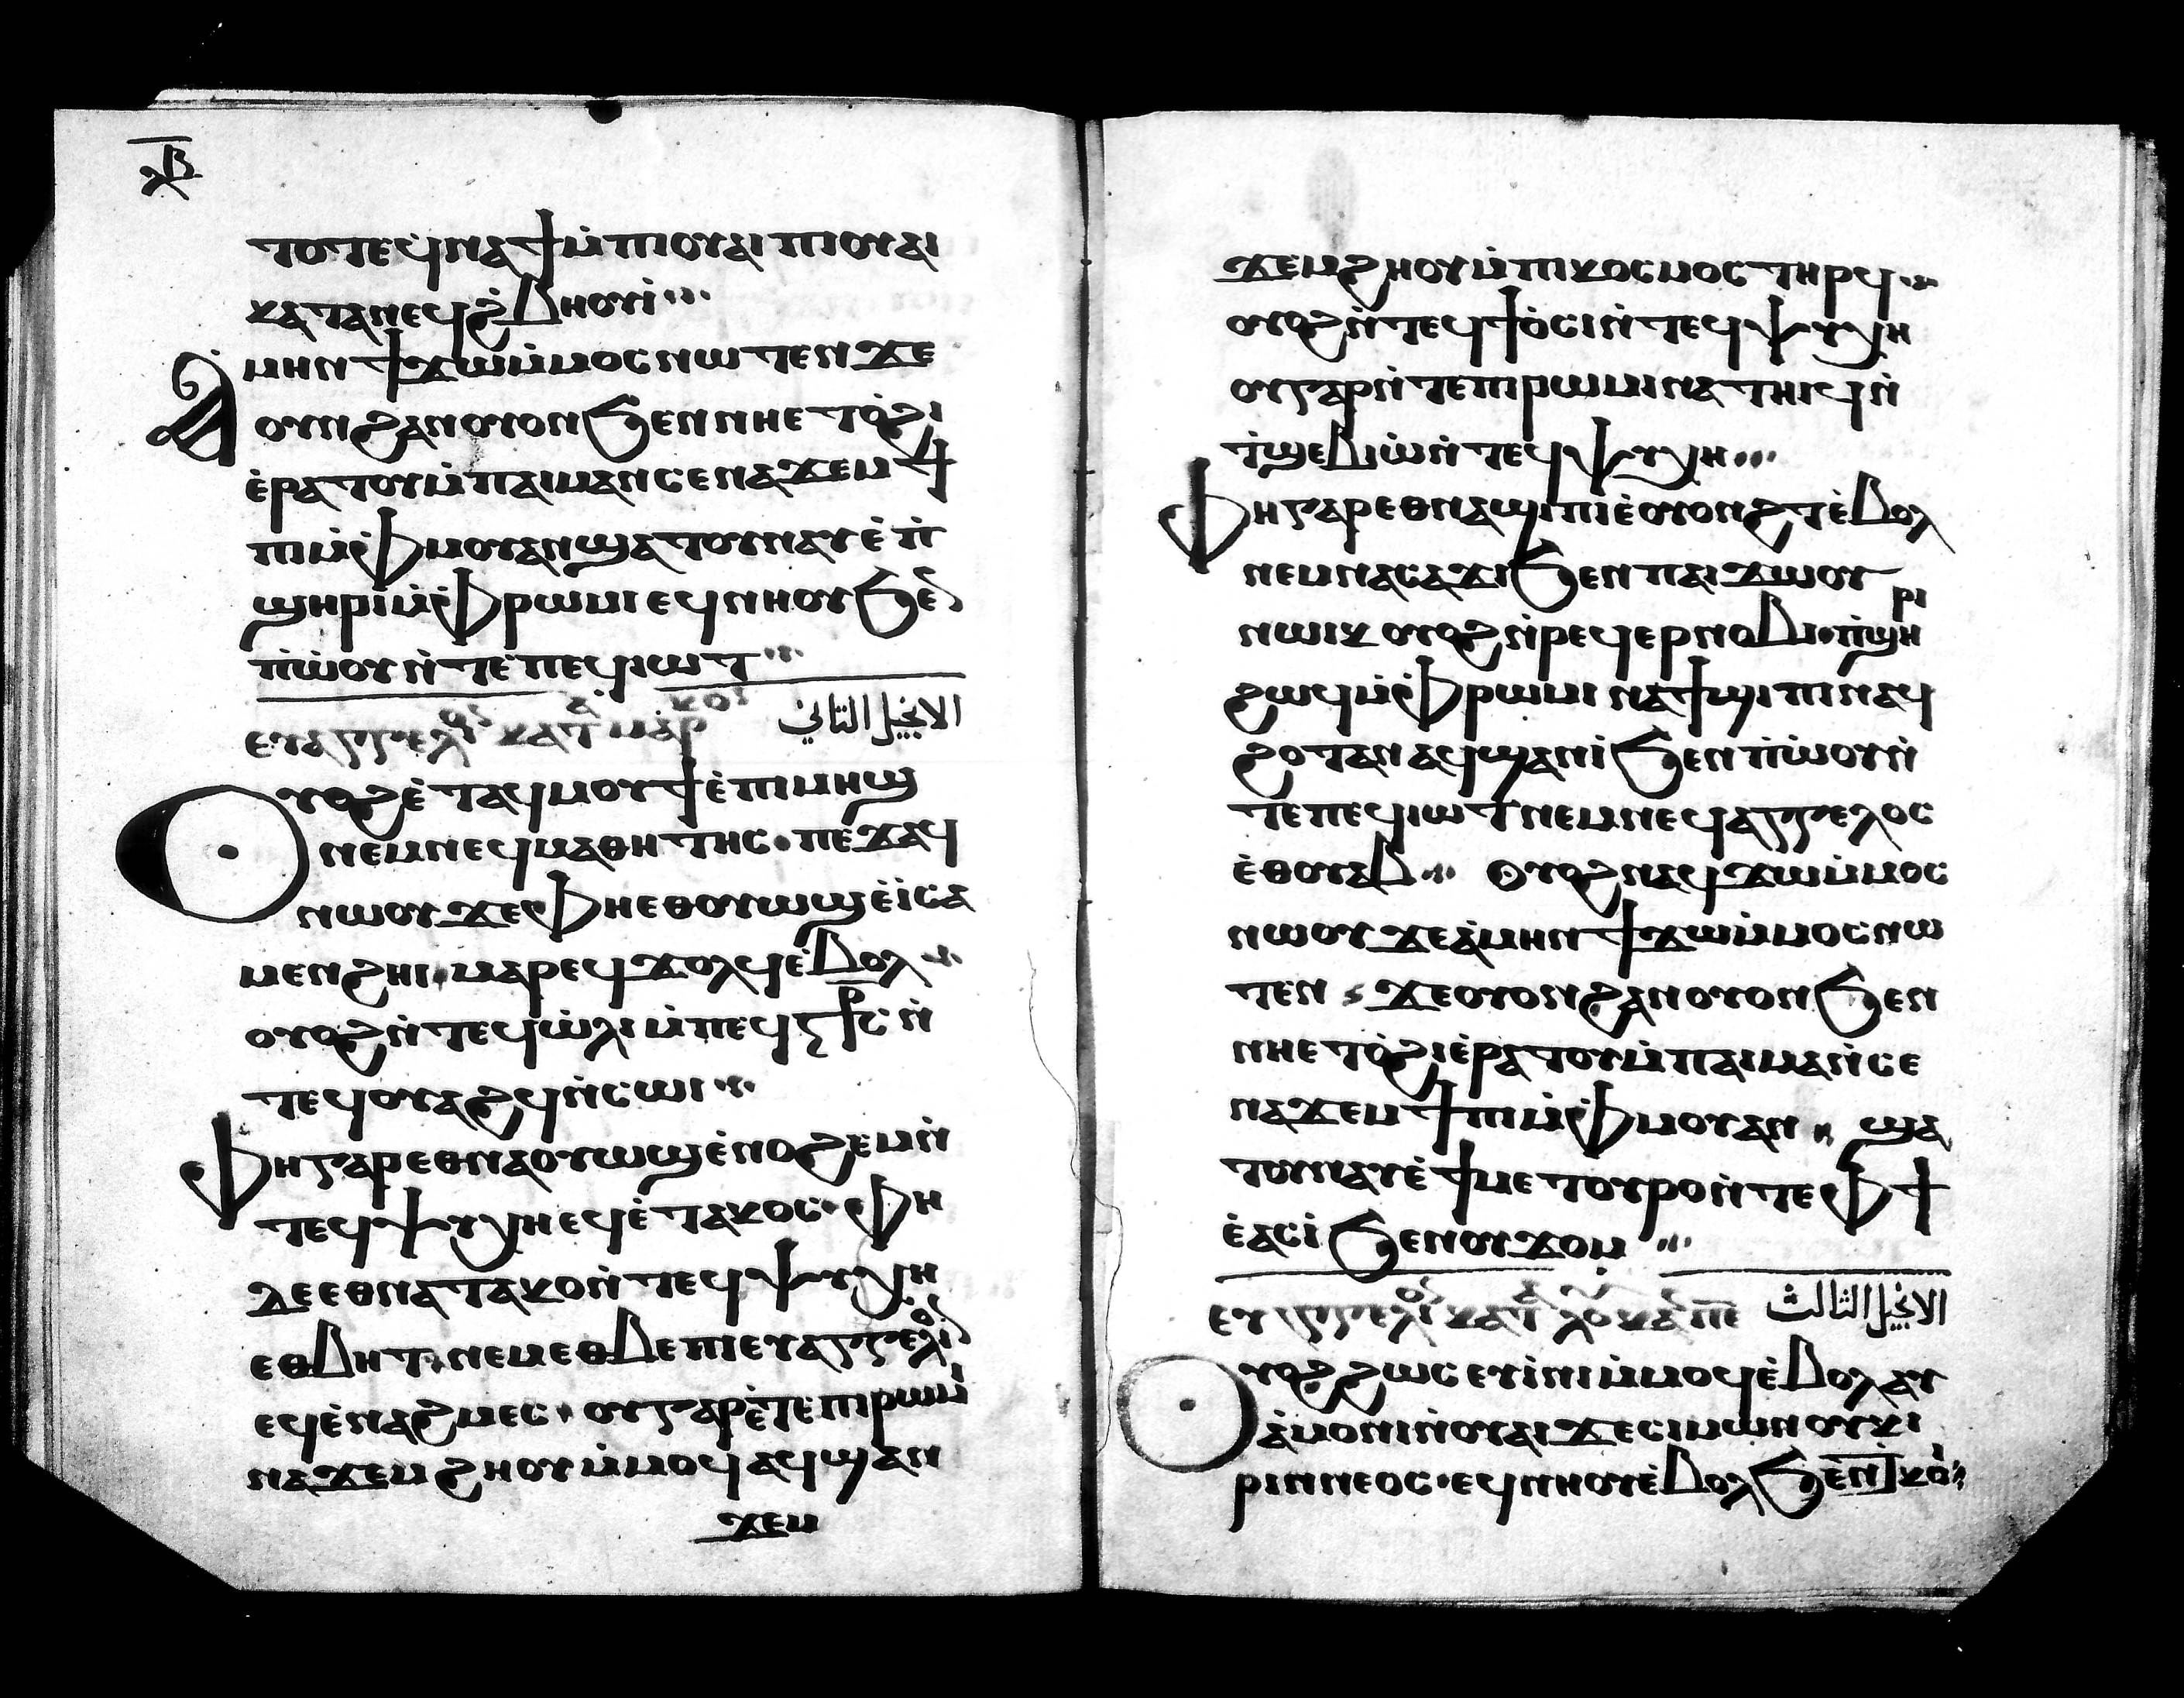 ⲗⲃ
ⲧⲟⲧⲉϥⲛⲁϯⲙ̇ⲡⲓⲟⲩⲁⲓ ⲡⲓⲟⲩⲁⲓ
ⲕⲁⲧⲁⲛⲉϥϩ̇ⲃⲏⲟⲩⲓ̇
Ⲁⲙⲏⲛϯϫⲱⲙ̇ⲙⲟⲥⲛⲱⲧⲉⲛϫⲉ
ⲟⲩⲛϩⲁⲛⲟⲩⲟⲛϧⲉⲛⲛⲏⲉⲧⲟ̇ϩⲓ
ⲉ̇ⲣⲁⲧⲟⲩⲙ̇ⲡⲁⲓⲙⲁⲛⲥⲉⲛⲁϫⲉⲙϯ
ⲡⲓⲙ̇ⲫⲙⲟⲩⲁⲛϣⲁⲧⲟⲩⲛⲁⲩⲉ̇ⲡ̇
ϣⲏⲣⲓⲙ̇ⲫⲣⲱⲙⲓⲉϥⲛⲏⲟⲩϧⲉ
ⲡ̇ⲱ̇ⲟⲩⲛ̇ⲧⲉⲡⲉϥⲓⲱⲧ
ⲉⲩⲁⲅⲅⲉⲗⲓⲟⲛ ⲕⲁⲧⲁ ⲙⲁⲣⲕⲟⲛ الانجيل الثاني
Ⲟⲩⲟϩⲉ̇ⲧⲁϥⲙⲟⲩϯⲉ̇ⲡⲓⲙⲏϣ
ⲛⲉⲙⲛⲉϥⲙⲁⲑⲏⲧⲏⲥ·ⲡⲉϫⲁϥ
ⲛⲱⲟⲩϫⲉⲫⲏⲉⲑⲟⲩⲱϣⲉ̇ⲓ̇ⲥⲁ
ⲙⲉⲛϩⲏⲓ·ⲙⲁⲣⲉϥϫⲟⲗϥⲉ̇ⲃⲟⲗ
ⲟⲩⲟϩⲛ̇ⲧⲉϥⲱ̇ⲗⲓⲙ̇ⲡⲉϥⲥ̅ⲣ̅ⲥ̅ⲛ̇
ⲧⲉϥⲟⲩⲁϩϥⲛ̇ⲥⲱⲓ
Ⲫⲏⲅⲁⲣⲉⲑⲛⲁⲟⲩⲱϣⲉ̇ⲛⲟϩⲉⲙⲛ̇
ⲧⲉϥⲯⲩⲭⲏⲉϥⲉ̇ⲧⲁⲕⲟⲥ·ⲫⲏ
ⲇⲉⲉⲑⲛⲁⲧⲁⲕⲟⲛ̇ⲧⲉϥⲯⲩⲭⲏ
ⲉⲑⲃⲏⲧ·ⲛⲉⲙⲉⲑⲃⲉⲡⲓⲉⲩⲁⲅⲅⲉⲗⲓⲟⲛ
ⲉϥⲉ̇ⲛⲁϩⲙⲉⲥ·ⲟⲩⲅⲁⲣⲉ̇ⲧⲉⲡⲓⲣⲱⲙⲓ
ⲛⲁϫⲉⲙϩⲏⲟⲩⲙ̇ⲙⲟϥⲁϥϣⲁⲛ
ϫⲉⲙ
ϫⲉⲙϩⲏⲟⲩⲙ̇ⲡⲓⲕⲟⲥⲙⲟⲥⲧⲏⲣϥ
ⲟⲩⲟϩⲛ̇ⲧⲉϥϯⲟ̇ⲥⲓⲛ̇ⲧⲉϥⲯⲩⲭⲏ
ⲟⲩⲅⲁⲣⲛ̇ⲧⲉⲡⲓⲣⲱⲙⲓⲛⲁⲧⲏⲓϥⲛ̇
ⲧ̇ϣⲉⲃⲓⲱ̇ⲛ̇ⲧⲉϥⲯⲩⲭⲏ
Ⲫⲏⲅⲁⲣⲉⲑⲛⲁϣⲓⲡⲓⲉ̇ⲟⲩⲟⲛϩⲧⲉ̇ⲃⲟⲗ
ⲛⲉⲙⲛⲁⲥⲁϫⲓϧⲉⲛⲡⲁⲓϫⲱⲟⲩ
ⲛⲱⲓⲕ ⲟⲩⲟϩⲛ̇ⲣⲉϥⲉⲣⲛⲟⲃⲓ·ⲡ̇ϣⲏⲣⲓ
ϩⲱϥⲙ̇ⲫⲣⲱⲙⲓ ⲛⲁϯϣⲓⲡⲓⲛⲁϥ
ϩⲟⲧⲁⲛⲁϥϣⲁⲛⲓ̇ϧⲉⲛⲡ̇ⲱ̇ⲟⲩⲛ̇
ⲧⲉⲡⲉϥⲓⲱⲧⲛⲉⲙⲛⲉϥⲁⲅⲅⲉⲗⲟⲥ
ⲉ̇ⲑⲟⲩⲁⲃ Ⲟⲩⲟϩⲛⲁϥϫⲱⲙ̇ⲙⲟⲥ
ⲛⲱⲟⲩϫⲉⲁ̇ⲙⲏⲛϯϫⲱⲙ̇ⲙⲟⲥⲛⲱ
ⲧⲉⲛ ϫⲉⲟⲩⲟⲛϩⲁⲛⲟⲩⲟⲛϧⲉⲛ
ⲛⲏⲉⲧⲟ̇ϩⲓⲉ̇ⲣⲁⲧⲟⲩⲙ̇ⲡⲁⲓⲙⲁⲛ̇ⲥⲉ
ⲛⲁϫⲉⲙϯⲡⲓⲙ̇ⲫⲙⲟⲩⲁⲛ ϣⲁ
ⲧⲟⲩⲛⲁⲩⲉ̇ϯⲙⲉⲧⲟⲩⲣⲟⲛ̇ⲧⲉⲫϯ
ⲉ̇ⲁⲥⲓ̇ϧⲉⲛⲟⲩϫⲟⲙ
ⲉⲩⲁⲅⲅⲉⲗⲓⲟⲛ ⲕⲁⲧⲁ ⲗⲟⲩⲕⲁⲛ الانجيل الثالث
Ⲟⲩⲟϩϩⲱⲥⲉⲩⲓ̇ⲛⲓⲙ̇ⲙⲟϥⲉ̇ⲃⲟⲗⲁⲩ
ⲁ̇ⲙⲟⲛⲓⲛ̇ⲟⲩⲁⲓϫⲉⲥⲓⲙⲱⲛⲟⲩⲕⲓ
ⲣⲓⲛⲛⲉⲟⲥ·ⲉϥⲛⲏⲟⲩⲉ̇ⲃⲟⲗϧⲉⲛⲧⲕⲟⲓ